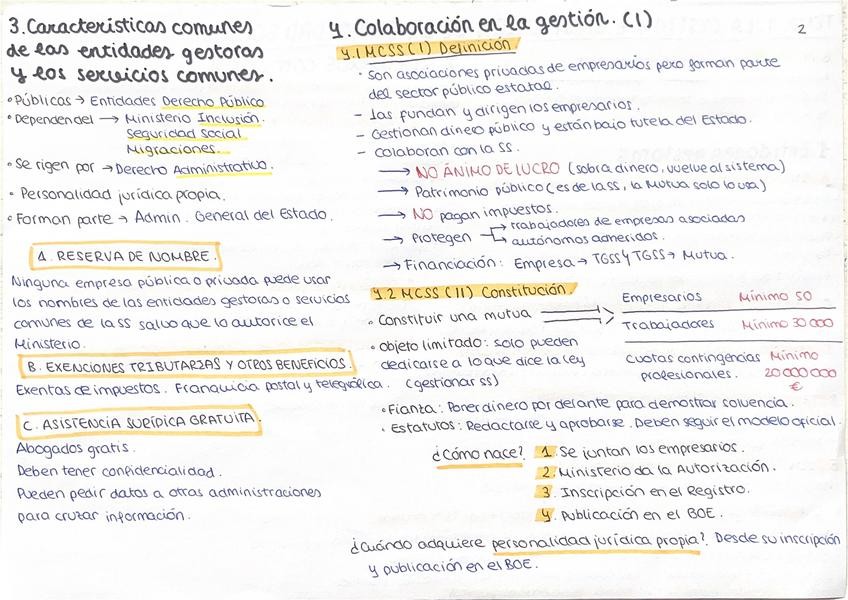 3. Características comunes
de las entidades gestoras
y los servicios comunes.
• Públicas → Entidades Derecho Público
• Dependen del → Ministerio Inclusión.
Seguridad Social
Migraciones.
• Se rigen por → Derecho Administrativo.
• Personalidad jurídica propia.
• Forman parte → Admin. General del Estado.
A. RESERVA DE NOMBRE.
Ninguna empresa pública o privada puede usar
los nombres de las entidades gestoras o servicios
comunes de la SS salvo que lo autorice el
Ministerio.
B. EXENCIONES TRIBUTARIAS Y OTROS BENEFICIOS.
Exentas de impuestos. Franquicia postal y telegráfica.
C. ASISTENCIA JURÍDICA GRATUITA.
Abogados gratis.
Deben tener confidencialidad.
Pueden pedir datos a otras administraciones
para cruzar información.
2
4. Colaboración en la gestión. (I)
4.1 MCSS (I) Definición
• Son asociaciones privadas de empresarios pero forman parte
del sector público estatal.
- Las fundan y dirigen los empresarios.
- Gestionan dinero público y están bajo tutela del Estado.
- Colaboran con la SS.
→ NO ÁNIMO DE LUCRO (sobra dinero, vuelve al sistema)
→ Patrimonio público (es de la SS, la Mutua solo lo usa)
→ NO pagan impuestos.
→ Protegen → trabajadores de empresas asociadas
→ autónomos adheridos.
→ Financiación: Empresa → TGSS y TGSS → Mutua.
4.2 MCSS (II) Constitución.
• Constituir una mutua
Empresarios Mínimo 50
Trabajadores Mínimo 30 000
Cuotas contingencias Mínimo
profesionales. 20 000 000
€
• Objeto limitado: solo pueden
dedicarse a lo que dice la ley
(gestionar SS)
• Fianta: Poner dinero por delante para demostrar solvencia.
• Estatutos: Redactarse y aprobarse. Deben seguir el modelo oficial.
¿Cómo nace?
1. Se juntan los empresarios.
2. Ministerio da la Autorización.
3. Inscripción en el Registro.
4. Publicación en el BOE.
¿Cuándo adquiere personalidad jurídica propia?. Desde su inscripción
y publicación en el BOE.